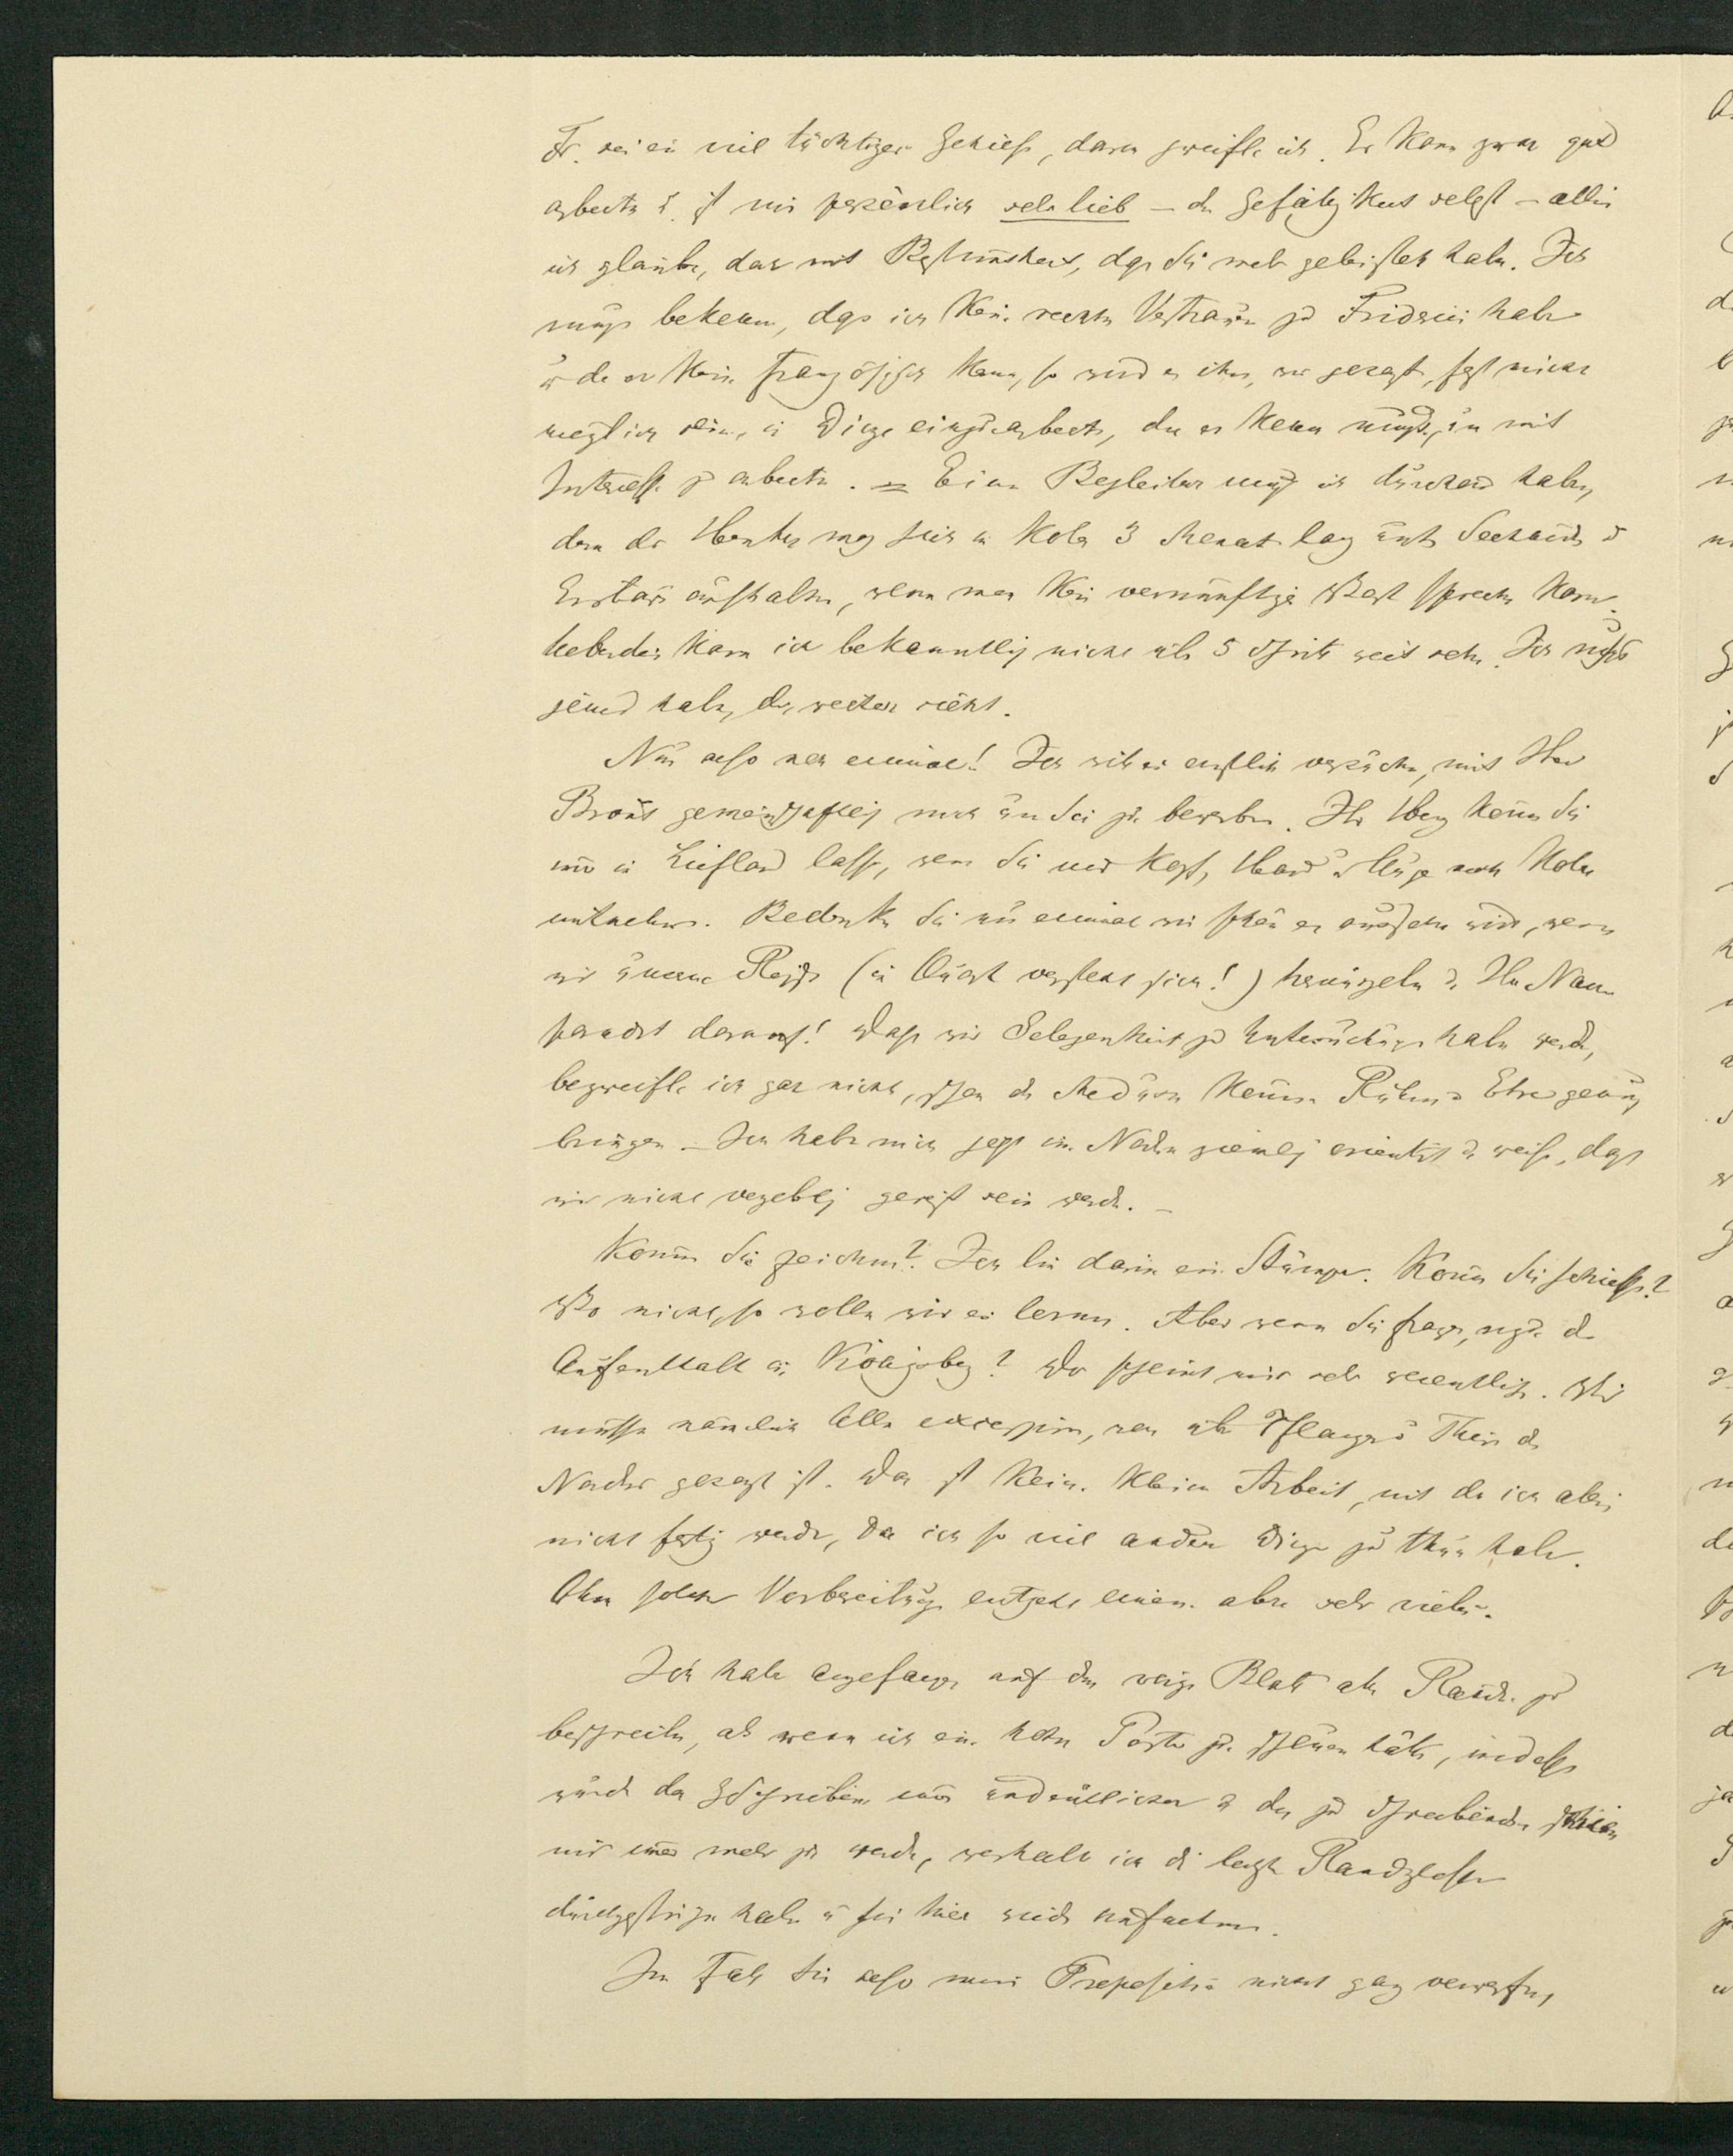 Fr. sei ein viel tüchtiger Gehülfe, daran zweifle ich. Er kann zwar gut
arbeiten u. ist mir persönlich sehr lieb – die Gefälligkeit selbst – allein
ich glaube, das mit Bestimmtheit, daß Sie mehr geleistet haben. Ich
muß bekennen, daß ich kein rechtes Vertrauen zu Fridwin habe
u da er kein französisch kann, so wird es ihm, wie gesagt, fast nicht
möglich sein, in Dinge einzuarbeiten, die er kennen muß, um mit
Interesse zu arbeiten. – Einen Begleiter muß ich durchaus haben,
denn der Henker mag sich in Kola 3 Monat lang unter Seehunden u
Eisbären aufhalten, wenn man kein vernünftiges Wort sprechen kann.
Ueberdies kann ich bekanntlich nicht über 5 Schritt weit sehn. Ich muß
jemand haben, der weiter sieht.
Nun also noch einmal! Ich will es ernstlich versuchen, mit Herrn
gemeinschaftlich mich um Sie zu bewerben. Ihr Herz können Sie
immer in Liefland lassen, wenn Sie nur Kopf, Hand u Auge nach Kola
mitnehmen. Bedenken Sie nur einmal wie schön es aussehen wird, wenn
wir unsere Reise (in Quart versteht sich!) herausgeben u. Ihr Name
paradirt darauf! Daß wir Gelegenheit zu Untersuchungen haben werden,
bezweifle ich gar nicht, schon die Medusen können Ruhm u Ehre genug
bringen. – Ich habe mich jetzt im Norden ziemlich orientirt u. weiß, daß
wir nicht vergeblich gereist sein werden. –
Können Sie zeichnen? Ich bin darin ein Stümper. Können Sie schießen?
Wo nicht, so wollen wir es lernen. Aber wenn Sie fragen, wozu der
Aufenthalt in Königsberg? Der scheint mir sehr wesentlich. Wir
müssen nämlich Alles excerpiren, was über Pflanzen u Thiere des
Nordens gesagt ist. Das ist keine kleine Arbeit, mit der ich allein
nicht fertig werde, da ich so viel andere Dinge zu thun habe.
Ohne solche Vorbereitung entgeht einem aber sehr vieles.
Ich habe angefangen auf dem vorigen Blatt alle Ränder zu
beschreiben, als wenn ich ein hohes Porto zu scheuen hätte, indessen
würde das Geschriebene immer undeutlicher u das zu Schreibende schien
mir immer mehr zu werden, weshalb ich die letzte Randglosse
durchgestrichen habe u sie hier wieder aufnehme.
Im Fall Sie also meine Proposition nicht ganz verwerfen,